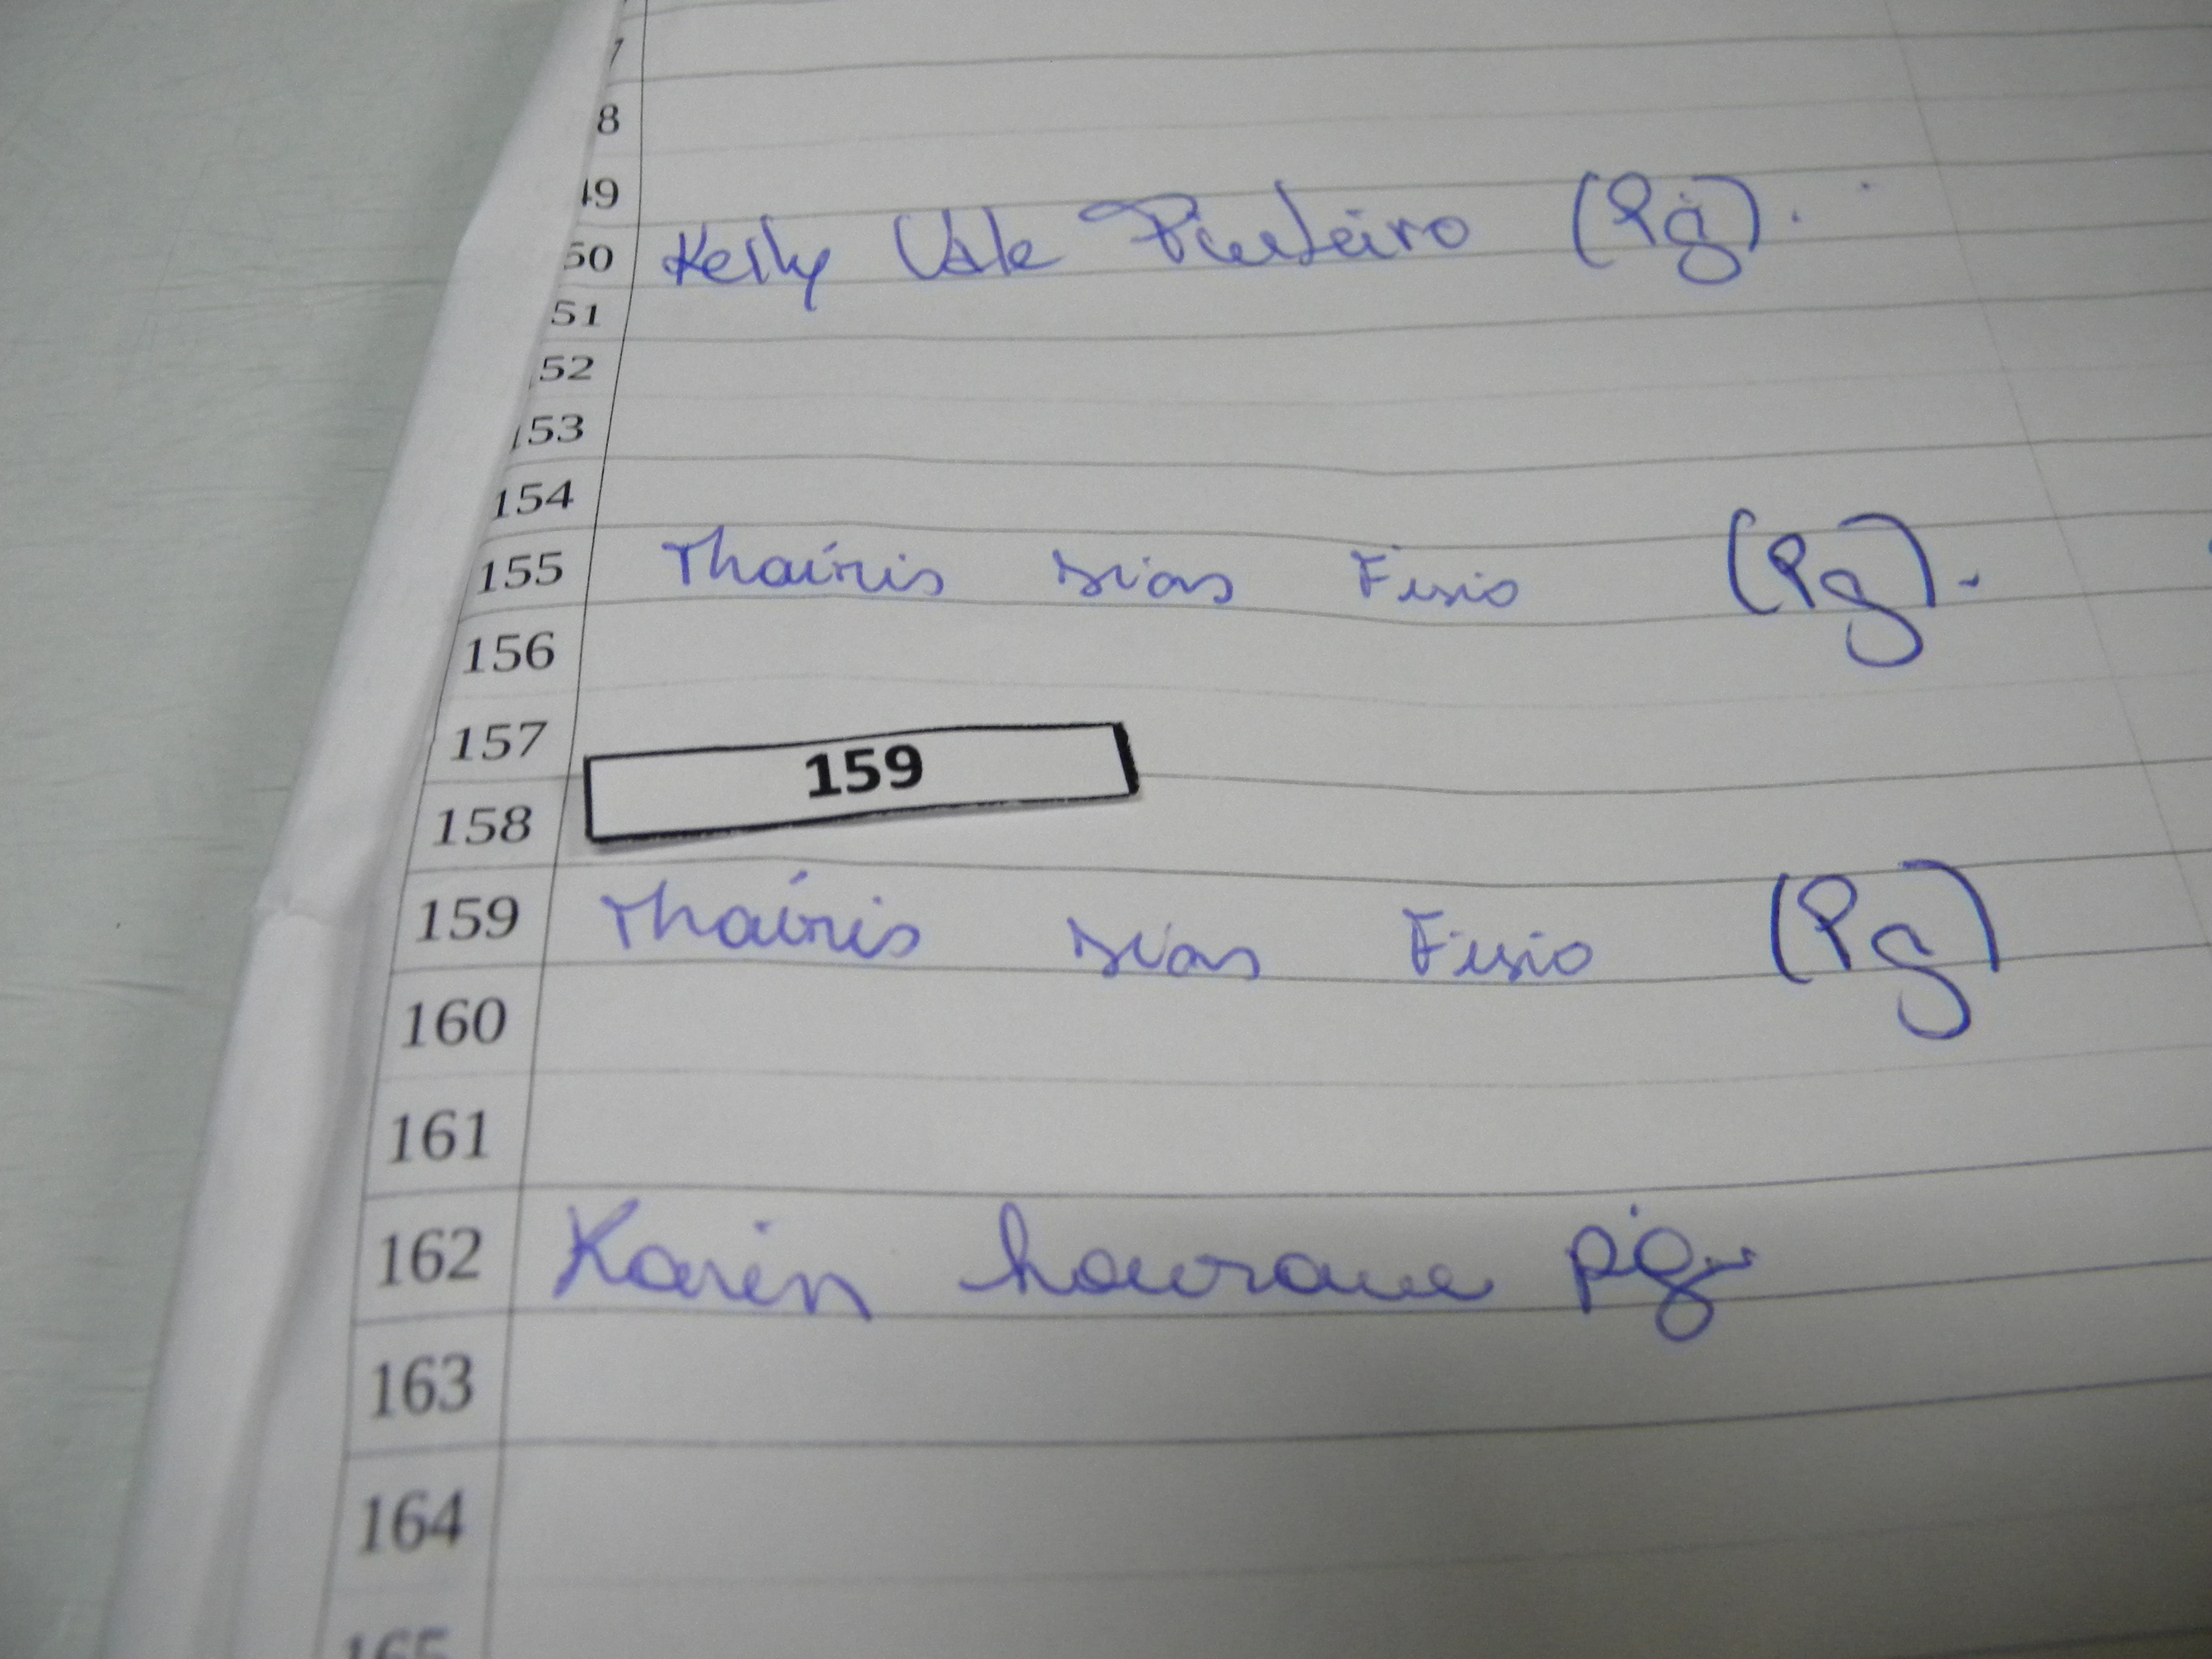 7
8
49
50 Kelly Vale Pinheiro (Pg).
51
52
153
154
155 Thaíris Dias Fisio (Pg).
156
157
159
158
159 Thaíris Dias Fisio (Pg)
160
161
162 Karen pg
163
164
165